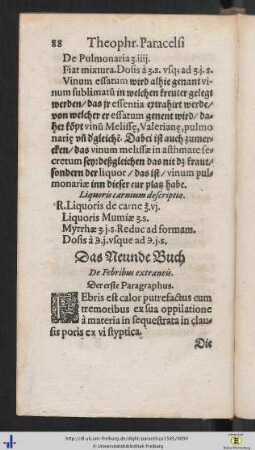 88 Theophr. Paracelsi
De Pulmonaria ʒ.iiij.
Fiat mixtura. Dosis à ʒ.s. vsq; ad ʒ.j.s.
Vinum essatum wird alhie genant vi-
num sublimatũ in welchen kreuter gelegt
werden/ das jr essentia extrahirt werde/
von welcher er essatum genent wird/ da-
her kõpt vinũ Melissę, Valerianę, pulmo-
narię vñ d'gleichẽ. Dabei ist auch zumer-
cken/ das vinum melissæ in asthmate se-
cretum sey: deßgleichen das nit dz kraut/
sondern der liquor/ das ist/ vinum pul-
monariæ inn dieser cur platz habe.
Liquoris carnium descriptio.
R. Liquoris de carne ʒ.vj.
Liquoris Mumiæ ʒ.s.
Myrrhæ ʒ.j.s. Reduc ad formam.
Dosis à ℈.j. vsque ad ℈.j.s.
Das Neunde Buch
De Febribus extraneis.
Der erste Paragraphus.
FEbris est calor putrefactus cum
tremoribus ex sua oppilatione
à materia in sequestrata in clau-
sis poris ex vi styptica.
Die
http://dl.ub.uni-freiburg.de/diglit/paracelsus1585/0094
© Universitätsbibliothek Freiburg